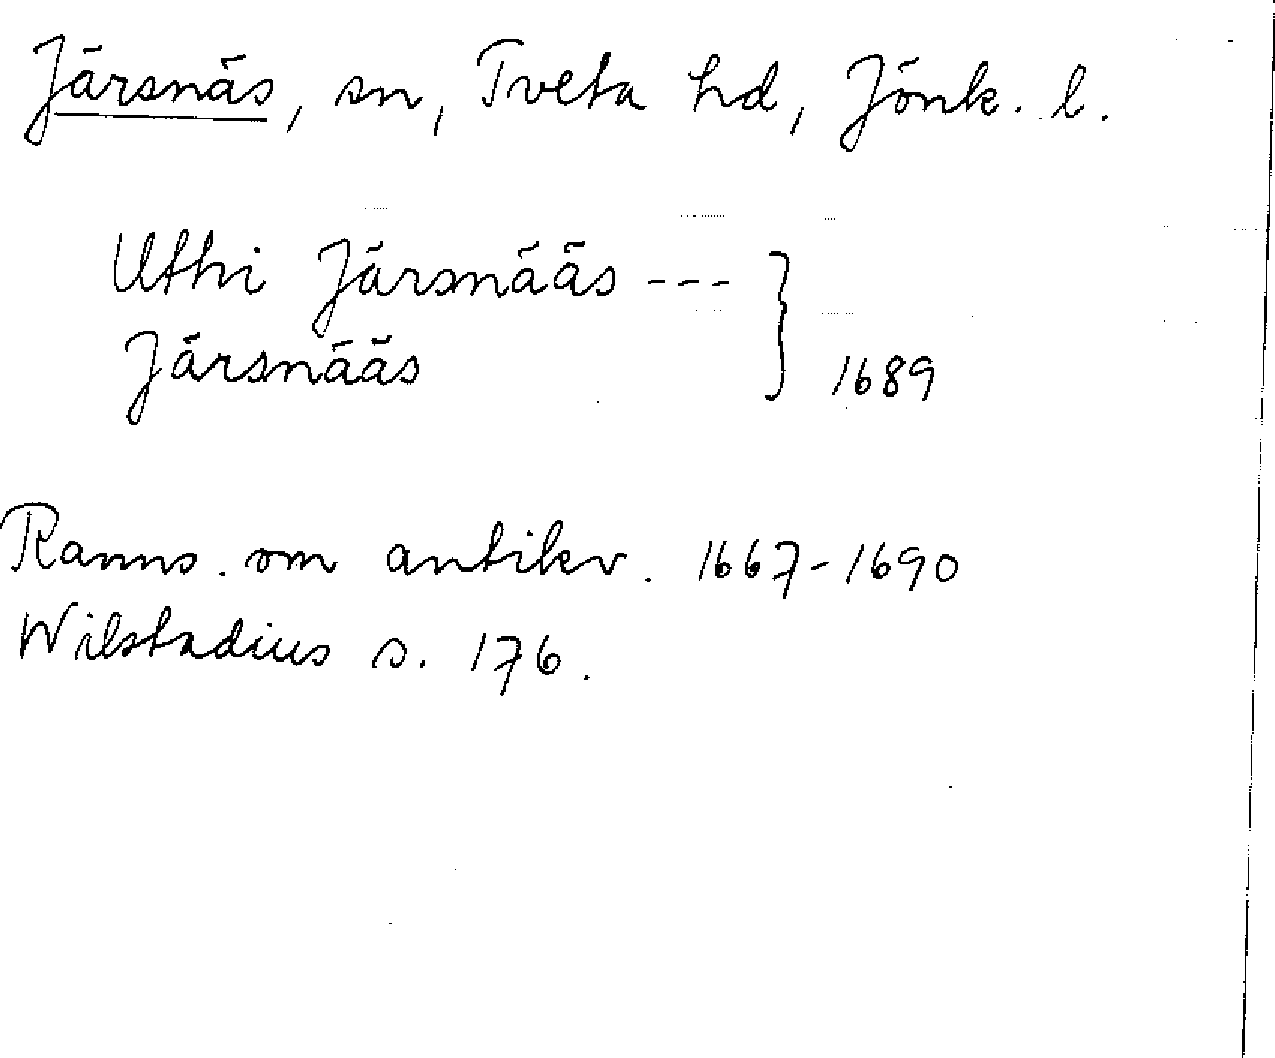 Järsnäs, sn, Tveta hd, Jönk. l.
Uthi Järsnääs --- } 1689
Järsnääs
Ranns. om antikv. 1667-1690
Wilstadius s. 176.